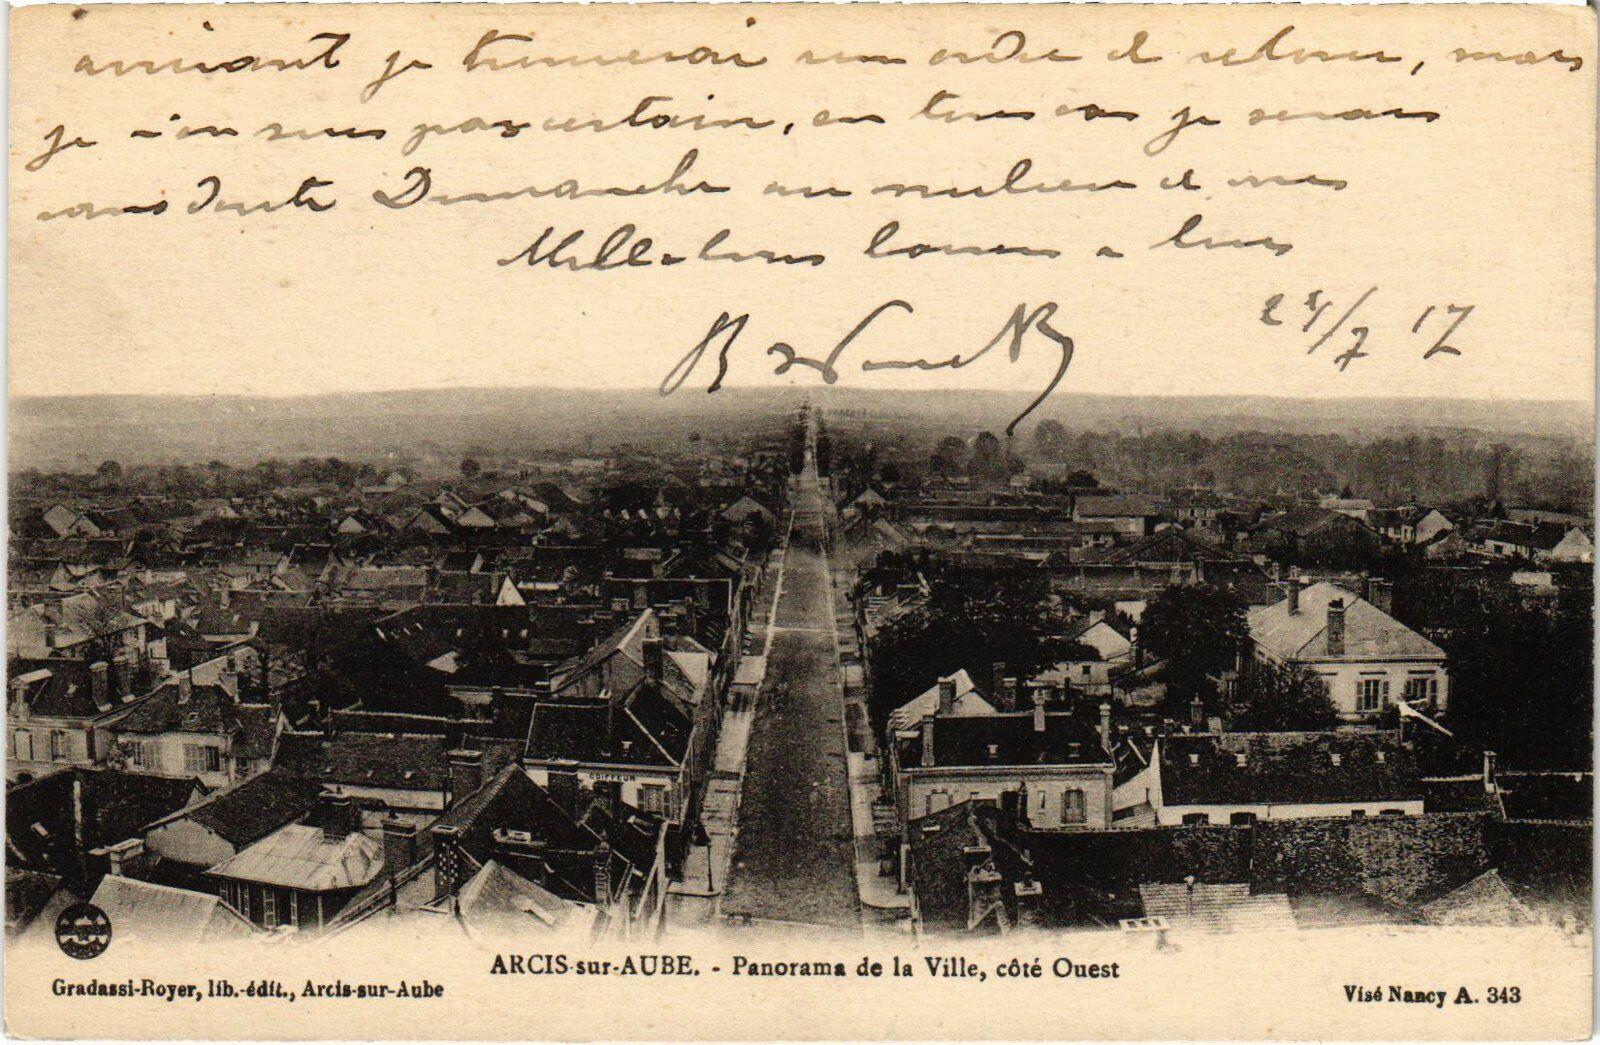 arrivant je trouverai un ordre de retour, mais
je n'en suis pas certain, en tous cas je serais
sans doute Dimanche au milieu de vous
Mille bons baisers a tous
25/7 17
COIFFEUR
ARCIS-sur-AUBE. - Panorama de la Ville, côté Ouest
Gradassi-Royer, lib.-édit., Arcis-sur-Aube
Visé Nancy A. 343